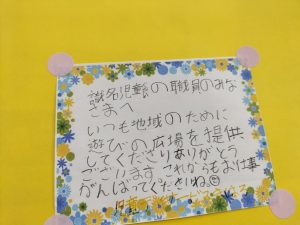 識名児童館の職員のみな
さまへ
いつも地域のために
遊びの広場を提供
してくださりありがとう
ございます。これからもお仕事
がんばってくださいね